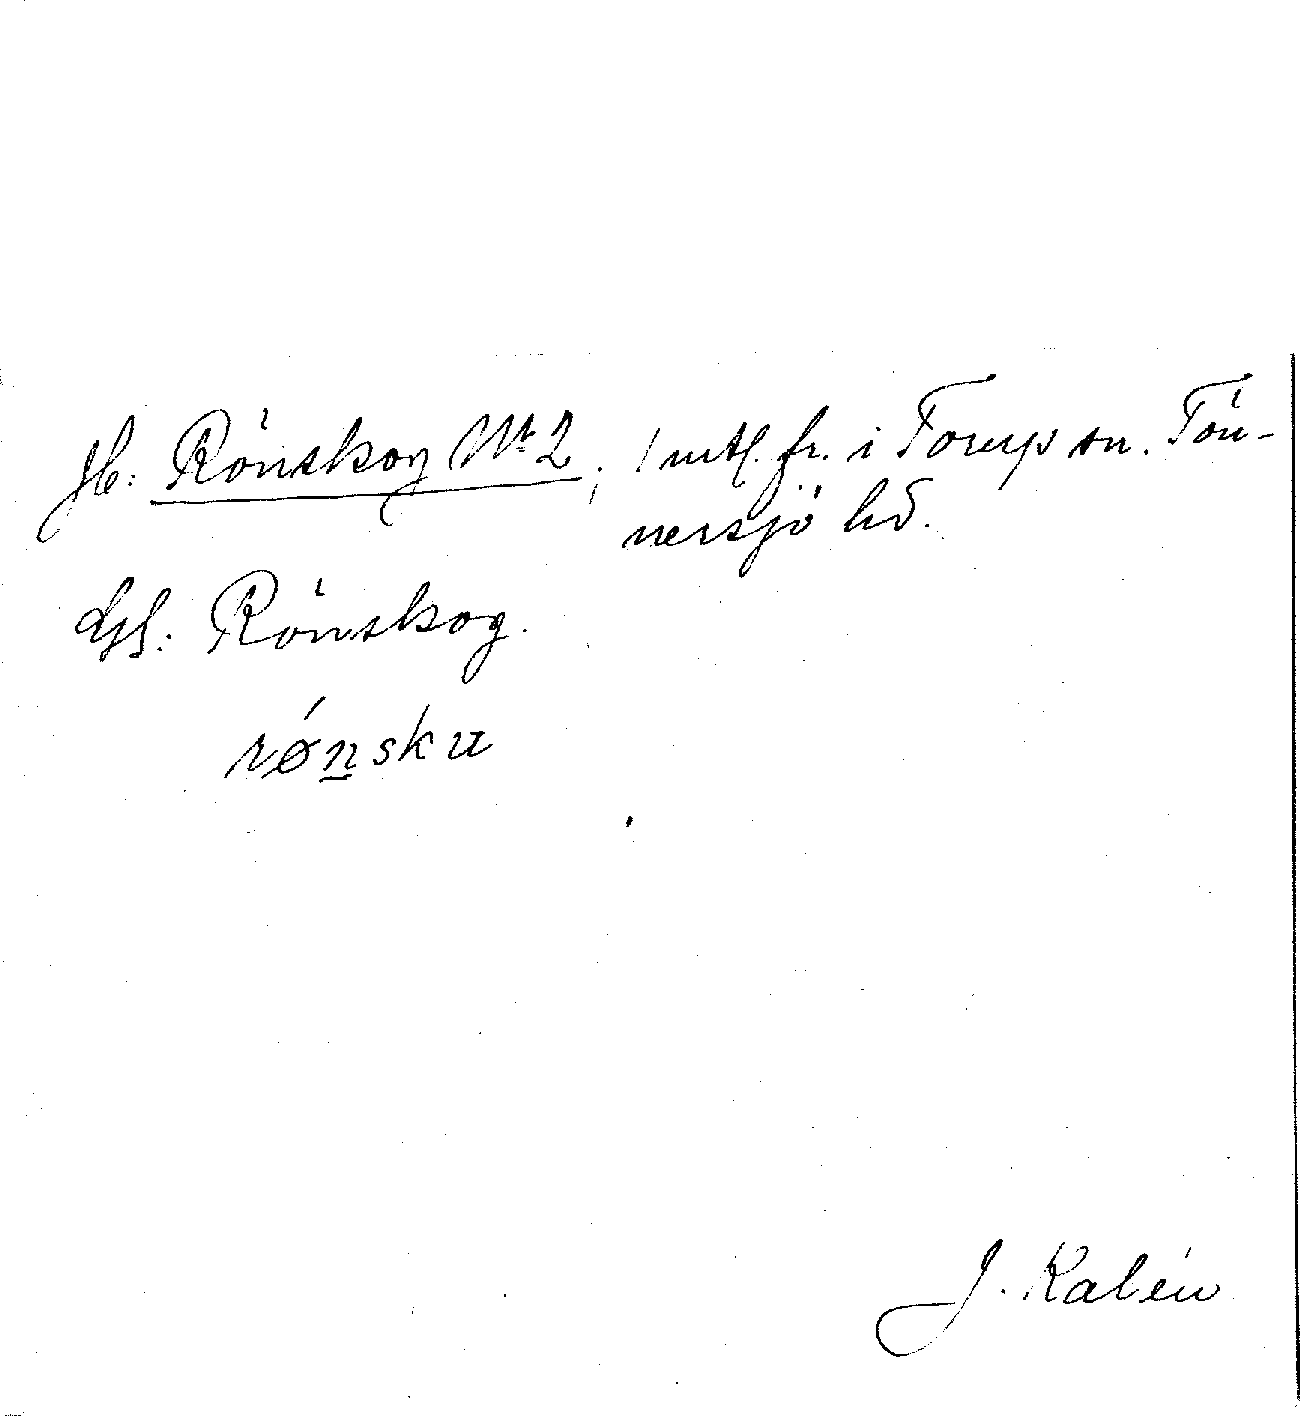 Jb: Rönskog Nr 2; 1 mtl. fr. i Torup sn. Tön-
nersjö hd.
Gs: Rönskog.
rǿn̲sku
J. Kalén